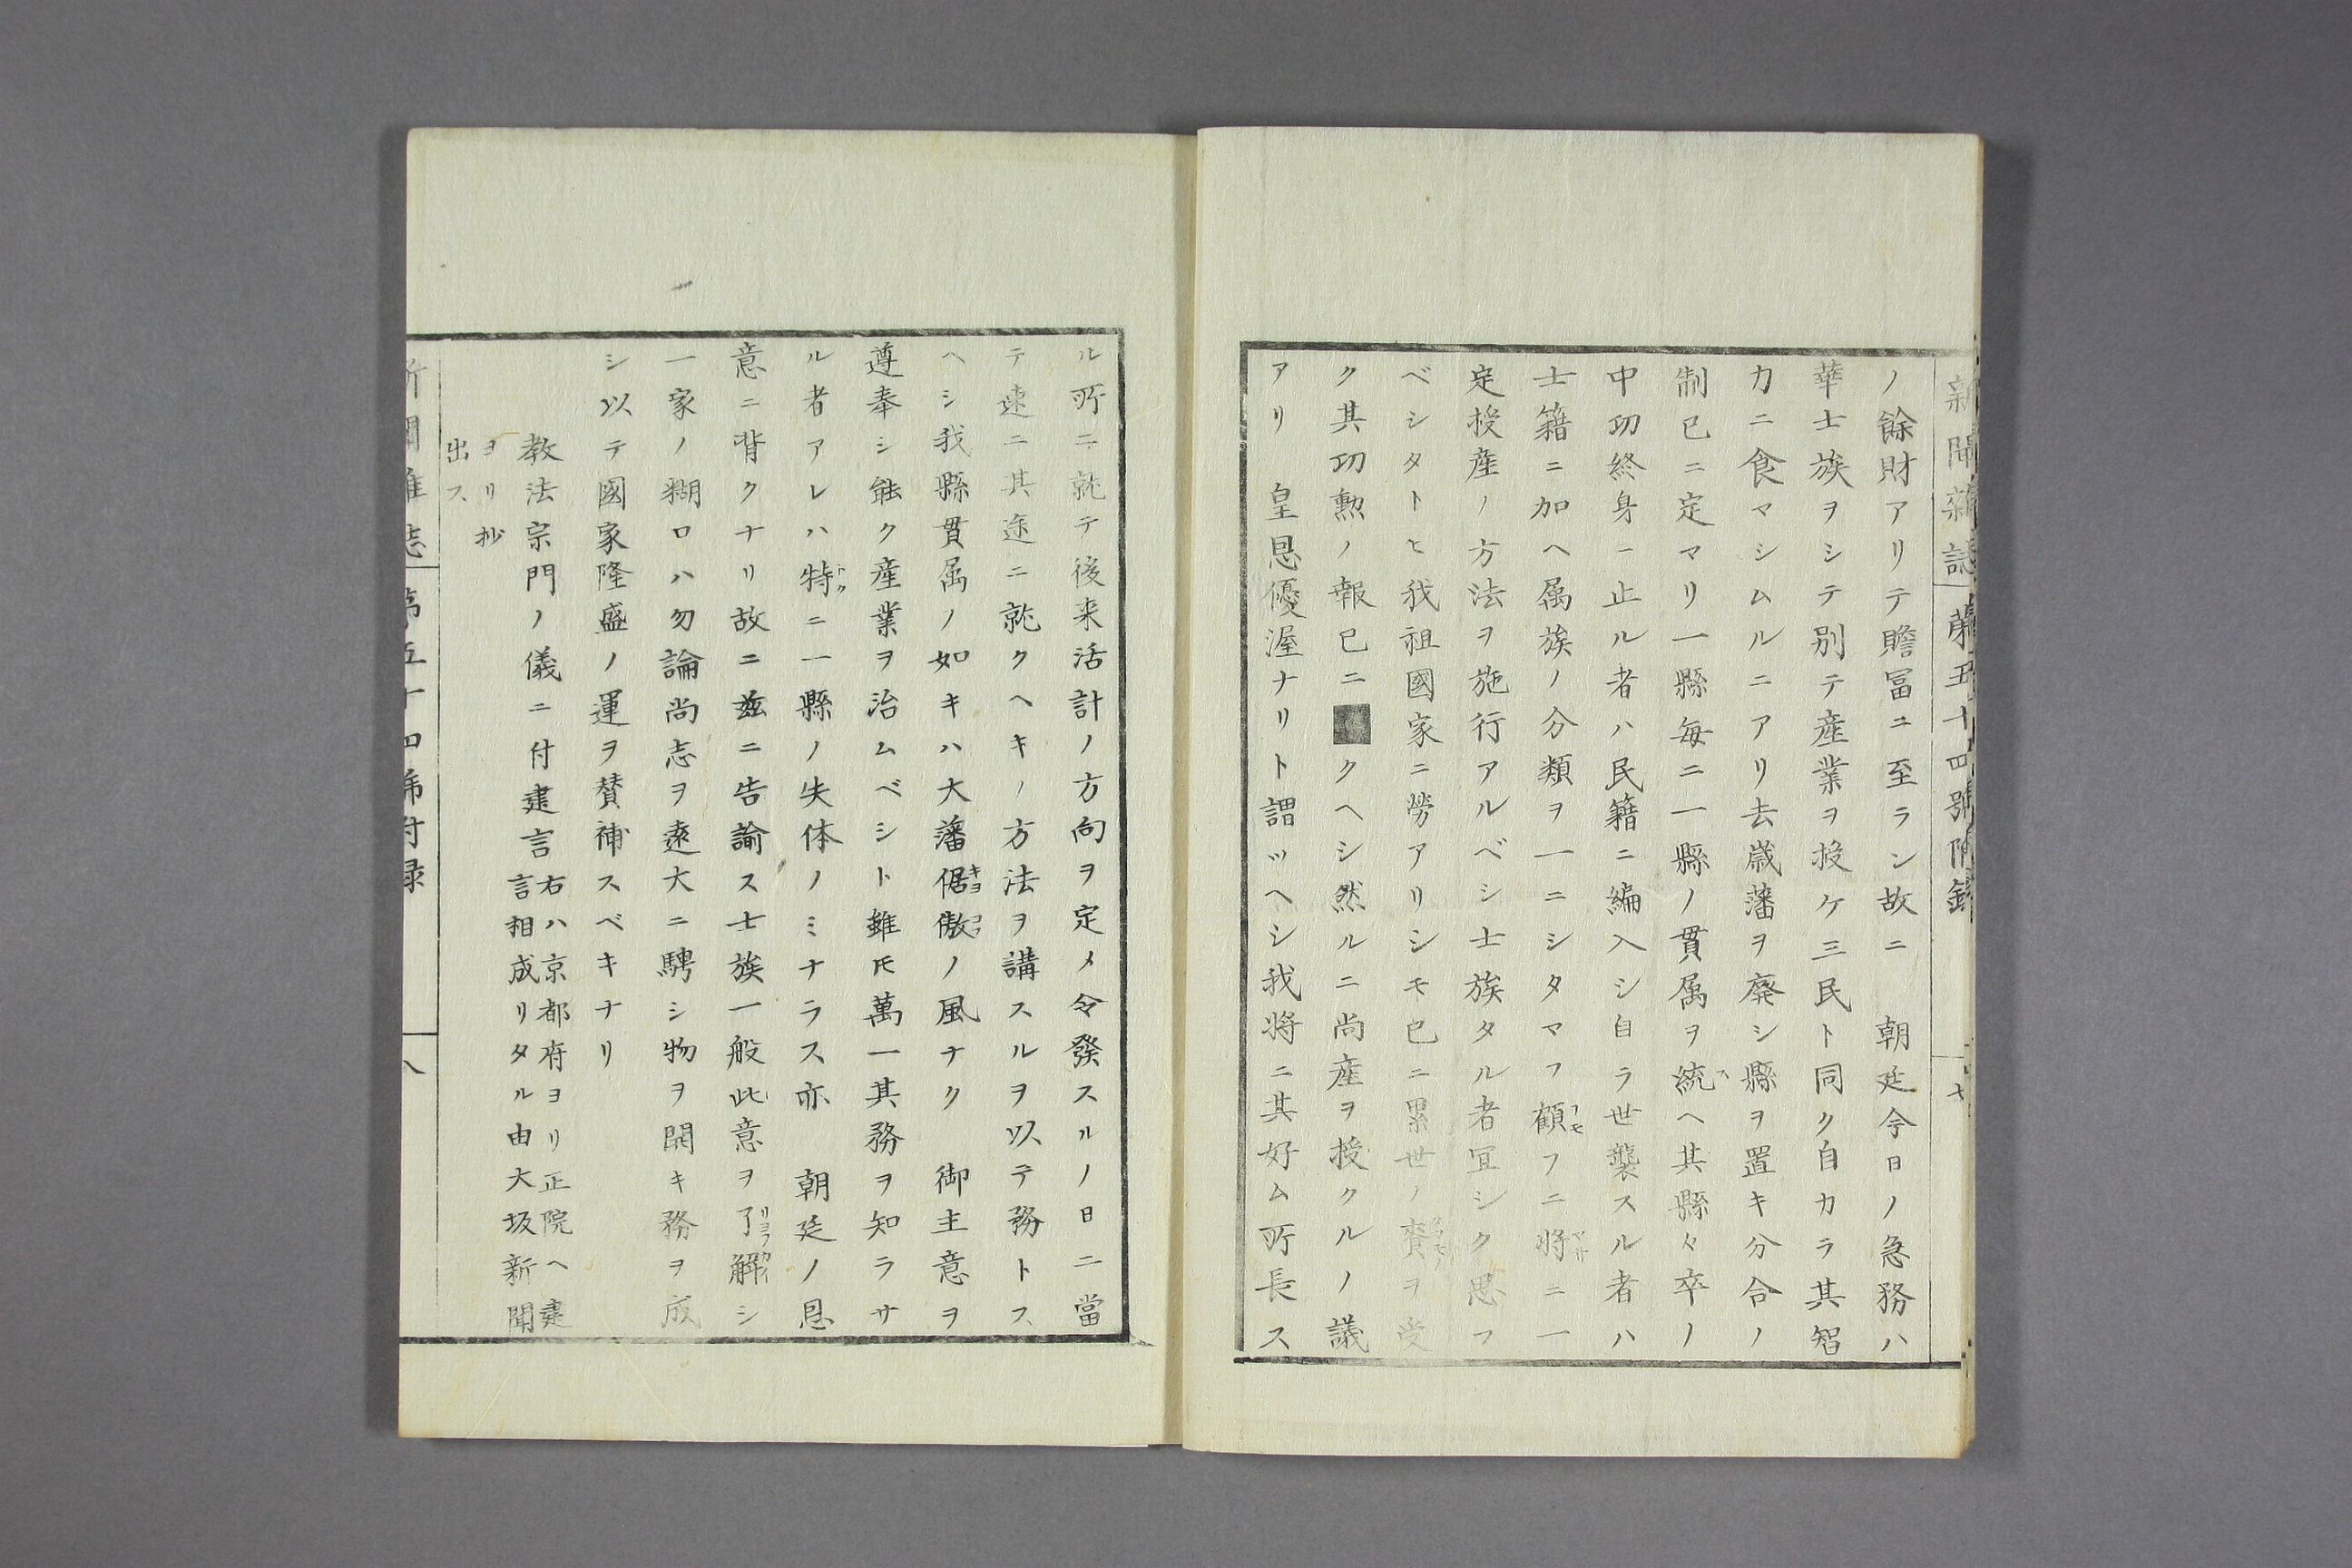 新聞雜誌 第五十四號附錄 七
ノ餘財アリテ贍冨ニ至ラン故ニ 朝廷今日ノ急務ハ
華士族ヲシテ別テ産業ヲ授ケ三民ト同ク自カラ其智
力ニ食マシムルニアリ去歳藩ヲ廃シ縣ヲ置キ分合ノ
制已ニ定マリ一縣毎ニ一縣ノ貫属ヲ統ヘ其縣々卒ノ
中切終身ニ止ル者ハ民籍ニ編入シ自ラ世襲スル者ハ
士籍ニ加ヘ属族ノ分類ヲ一ニシタマフ顧フニ将ニ一
定授産ノ方法ヲ施行アルベシ士族タル者冝シク思フ
ベシタトヒ我祖國家ニ勞アリシモ已ニ累世ノ賚ヲ受
ク其功勲ノ報已ニ■クヘシ然ルニ尚産ヲ授クルノ議
アリ 皇恩優渥ナリト謂ツヘシ我将ニ其好ム所長ス
ル所ニ就テ後来活計ノ方向ヲ定メ令發スルノ日ニ當
テ速ニ其途ニ就クヘキノ方法ヲ講スルヲ以テ務トス
ヘシ我縣貫属ノ如キハ大藩倨傲ノ風ナク 御主意ヲ
遵奉シ能ク産業ヲ治ムベシト雖𪜈萬一其務ヲ知ラサ
ル者アレハ特ニ一縣ノ失体ノミナラス亦 朝廷ノ恩
意ニ背クナリ故ニ茲ニ告諭ス士族一般此意ヲ了解シ
一家ノ糊口ハ勿論尚志ヲ遠大ニ騁シ物ヲ開キ務ヲ成
シ以テ國家隆盛ノ運ヲ賛補スベキナリ
教法宗門ノ儀ニ付建言
右ハ京都府ヨリ正院ヘ建
言相成リタル由大坂新聞
ヨリ抄
出ス
新聞雜誌 第五十四號附録 八